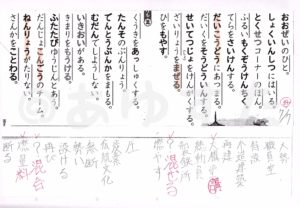 おおぜいのひと。
しょくいんしつにはいる。
とくせつコーナーのほん。
ふるいもくぞうけんちく。
てらをさいけんする。
だいこうどうにあつまる。
だいくをそうどういんする。
せいてつじょをけんがくする。
ざいりょうをまぜる。
ひをもやす。
くうきをあっしゅくする。
たんそのぶんりょう。
でんとうぶんかをまもる。
むだんでしようしない。
いきおいがある。
きまりをもうける。
ふたたびゆうじんとあう。
だんじょこんごうのチーム。
ねんりょうがたりない。
さんかをことわる。
大勢
職員室
特設
木造建築
再建
総動員
製鉄所
混ぜる
燃やす
圧
炭素
伝統文化
無断
勢い
設ける
再び
混合
燃料
断る